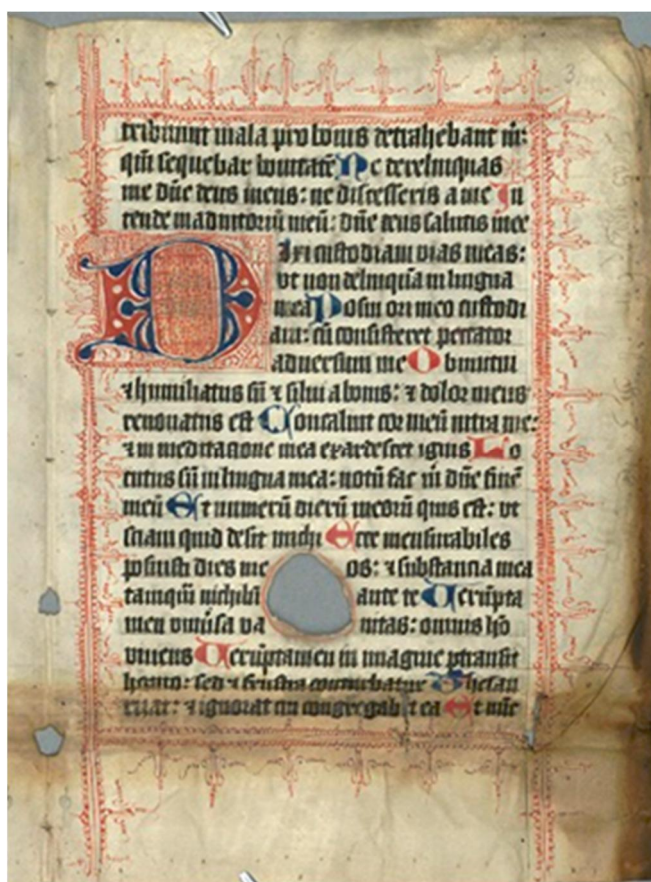 3.
tribuunt mala pro bonis detrahebant m̄:
qm̄ sequebar bonitatē Ne derelinquas
me dn̄e deus meus: ne discesseris a me In
tende in adiutoriū meū: dn̄e deus salutis mee
Dixi custodiam vias meas:
vt non delinquā in lingua
mea Posui ori meo custodi
am: cū consisteret peccator
adversum me Obmutui
⁊ humiliatus sū ⁊ silui a bonis: ⁊ dolor meus
renouatus est Concaluit cor meū intra me:
⁊ in meditacione mea exardescet ignis Lo
cutus sū in lingua mea: notū fac m̄ dn̄e finē
meū Et numerū dierū meorū quis est: vt
sciam quid desit michi Ecce mensurabiles
posuisti dies meos: ⁊ substancia mea
tamqm̄ nichilū ante te Uerūpta
men vniūsa vanitas: omnis hō
viuens Uerūptamen in imagine ptransit
homo: sed ⁊ frustra conturbatur Thesau
rizat: ⁊ ignorat cui congregabit ea Et nūc